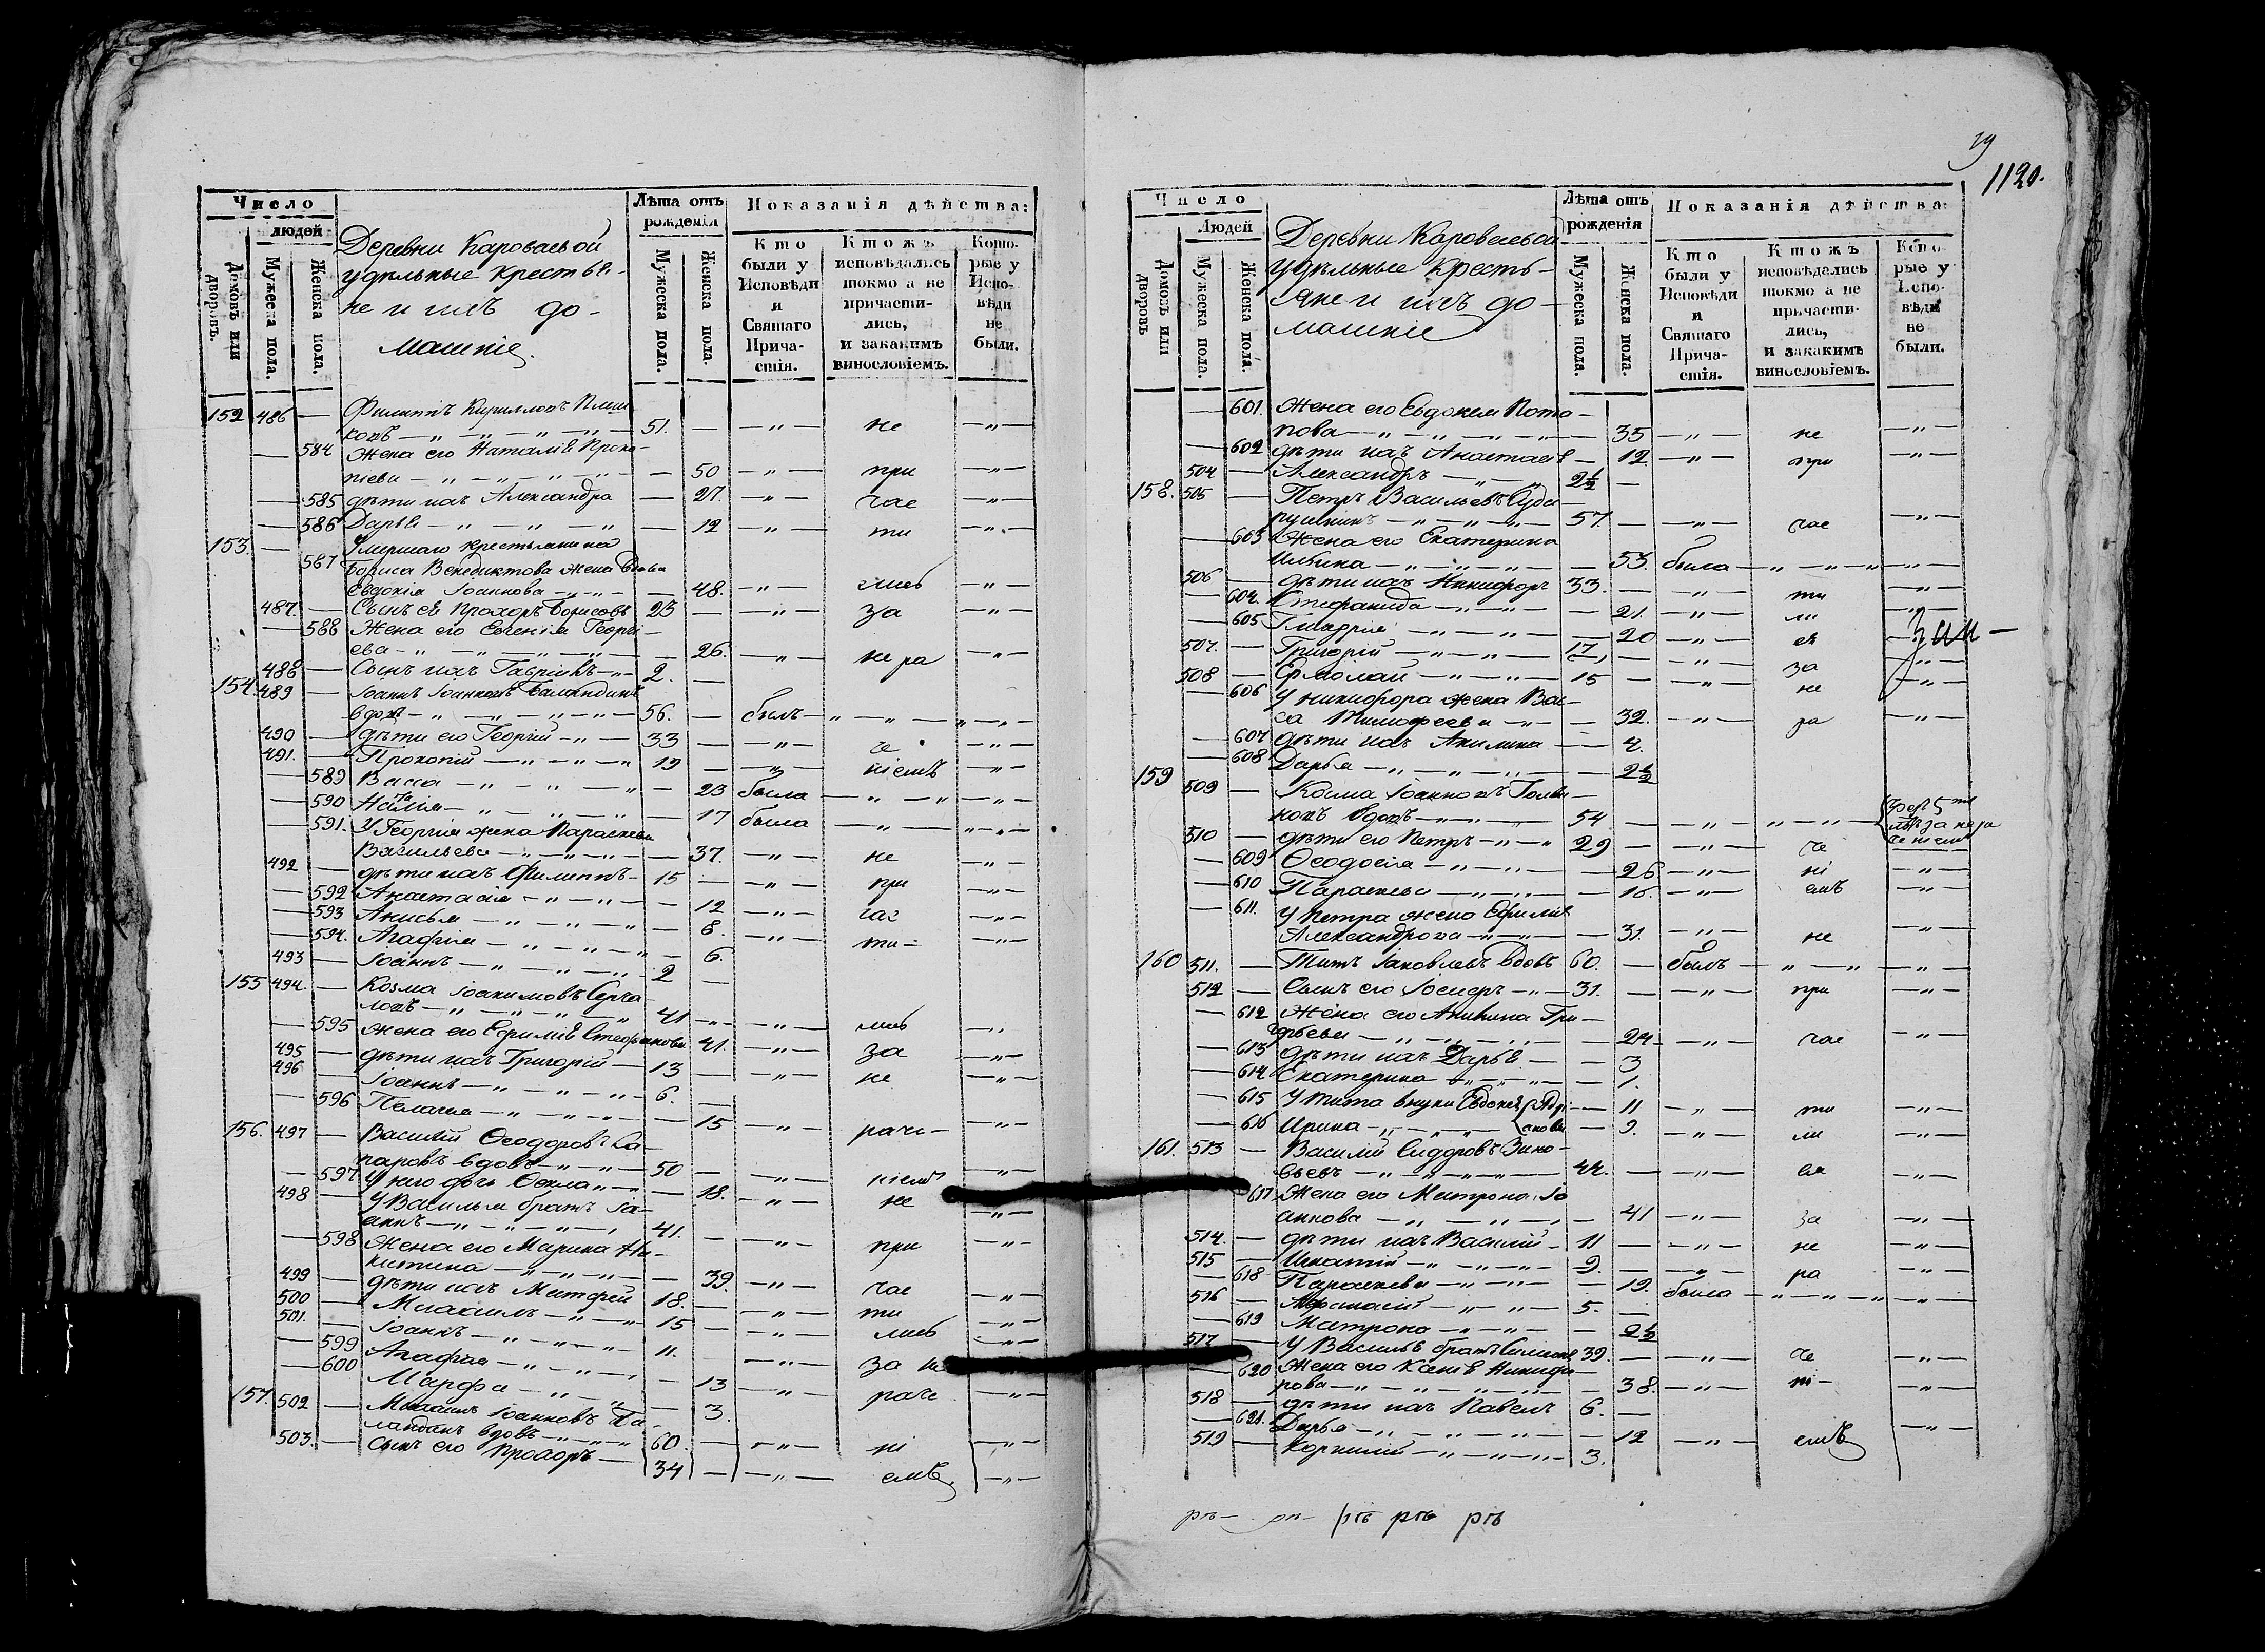 Число
людей
Домовъ или дворовъ.
Мужеска пола.
Женска пола.
Деревни Кароваевой
удѣльные крестья-
не и ихъ до-
машніе.
Лѣта отъ рожденія
Мужеска пола.
Женска пола.
Показанія дѣйства:
Кто были у Исповѣди и Святаго Причастія.
Ктожъ исповѣдались токмо а не причастились, и закакимъ винословіемъ.
Которые у Исповѣди не были.
152 486 — Филиппъ Кирилловъ
51. — — „ — не — „ —
— 584 Жена его Наталія Проко-
піева — 50 — „ — при — „ —
— 585 дѣти ихъ Александра — 27. — „ — час — „ —
— 586 Дарья — 12 — „ — ти — „ —
153. — Умершаго крестьянина
587 Бориса Венедиктова жена вдова
Евдокія Іоаннова — 48. — „ — лись — „ —
487. — Сынъ ея Прохоръ Борисовъ 23 — — „ — за — „ —
— 588 Жена его Евгенія Георгі-
ева — 26. — „ — не ра — „ —
488 — Сынъ ихъ Гавріилъ — 2. —
154. 489 — Іоаннъ Іоанновъ Баландинъ
вдовъ — 56. — былъ — „ — „ —
490 — дѣти его Георгій — 33 — — „ — че — „ —
491. — Прокопій — 19 — — „ — ніемъ — „ —
— 589 Васса — 23 была — „ — „ —
— 590 Наталія — 17 была — „ — „ —
— 591. У Георгія жена Параскева
Васильева — 37. — „ — не — „ —
492 — дѣти ихъ Филиппъ — 15 — — „ — при — „ —
— 592 Анастасія — 12 — „ — час — „ —
— 593 Анисья — 8. — „ — ти — — „ —
— 594. Агафія — 6.
493 — Іоаннъ — 2 —
155 494. — Козма Іоакимовъ
ловъ — 41 — „ — лись — „ —
— 595 Жена его Евфимія Стефанова 41. — „ — за — „ —
495 — дѣти ихъ Григорій — 13 — — „ — не — „ —
496 — Іоаннъ — 6. —
— 596 Пелагея — 15 — „ — раче — — „ —
156. 497 — Василій Ѳеодоровъ Са-
паровъ вдовъ — 50 — — „ — ніемъ — „ —
— 597 У него дочь Ѳекла — 18. — „ — не — „ —
498 — У Василья братъ Іо-
аннъ — 41. — — „ — при — „ —
— 598 Жена его Марина Ни-
китина — 39. — „ — час — „ —
499 — дѣти ихъ Матфей 18. — — „ — ти — „ —
500 — Михаилъ — 15 — — „ — лись — „ —
501. — Іоаннъ — 11. — — „ — за не — „ —
— 599 Агафія — 13 — „ — раче — „ —
— 600 Марфа — 3.
157. 502 — Михаилъ Іоанновъ Ба-
ландинъ вдовъ — 60. — — „ — ні — „ —
503. — сынъ его Прохоръ — 34 — — „ — емъ. — „ —
19
1120.
Число
Людей
Домовъ или дворовъ
Мужеска пола.
Женска пола.
Деревни Кароваевой
удѣльные кресть-
яне и ихъ до-
машніе
Лѣта отъ рожденія
Мужеска пола.
Женска пола.
Показанія дѣйства:
Кто были у Исповѣди и Святаго Причастія.
Ктожъ исповѣдались токмо а не причастились, и закакимъ винословіемъ.
Которые у Исповѣди не были.
— 601. Жена его Евдокея Пота-
пова — 35 — „ — не — „ —
— 602 дѣти ихъ Анастасія — 12 — „ — при — „ —
504 — Александръ — 2½ —
158. 505 — Петръ Васильевъ
57. — — „ — час — „ —
— 603 Жена его Екатерина
Ильина — 53. была — „ — „ —
506 — дѣти ихъ Никифоръ 33. — — „ — ти — „ —
— 604. Стефанида — 21. — „ — ли — „ —
— 605 — 20 — „ — ся
507. — Григорій — 17, — — „ — за — „ —
508 — Ермолай — 15 — — „ — не — „ —
— 606 У Никифора жена Вас-
са Тимофеева — 32. — „ — ра — „ —
— 607 дѣти ихъ Акилина — 4.
— 608 Дарья — 2½
159 509 — Козма Іоанновъ
вдовъ — 54 — — „ —
510 — дѣти его Петръ — 29 — — „ — че
— 609 Ѳеодосія — 26 — „ — ні — „ —
— 610 Параскева — 16. — „ — емъ — „ —
— 611. У Петра жена Ефимія
Александрова — 31. — „ — не — „ —
160 511. — Титъ Іаковлевъ вдовъ 60. — былъ — „ — „ —
512 — Сынъ его Іосифъ — 31. — — „ — при — „ —
— 612 Жена его Акилина Гри-
горьева — 24 — „ — час — „ —
— 613 дѣти ихъ Дарья — 3
— 614 Екатерина — 1.
— 615 У Тита внуки Евдокея — 11 — „ — ти — „ —
— 616 Ирина — 9. — „ — ли — „ —
161. 513 — Василій Сидоровъ Зино-
вьевъ — 44. — — „ — ся — „ —
617 Жена его Матрона Іо-
аннова — 41 — „ — за — „ —
514. — дѣти ихъ Василій — 11 — — „ — не — „ —
515 — Игнатій — 9. — — „ — ра — „ —
— 618 Параскева — 19. была — „ — „ —
516 — Афанасій — 5. —
— 619 Матрона — 2½
517 — У Василья братъ 39. — — „ — че — „ —
— 620 Жена его Ксенія Никифо-
рова — 38. — „ — ні — — „ —
518 — дѣти ихъ Павелъ 6. —
— 621. Дарья — 12 — „ — емъ — „ —
519 — Корнилій — 3.
ръ — ръ ръ ръ